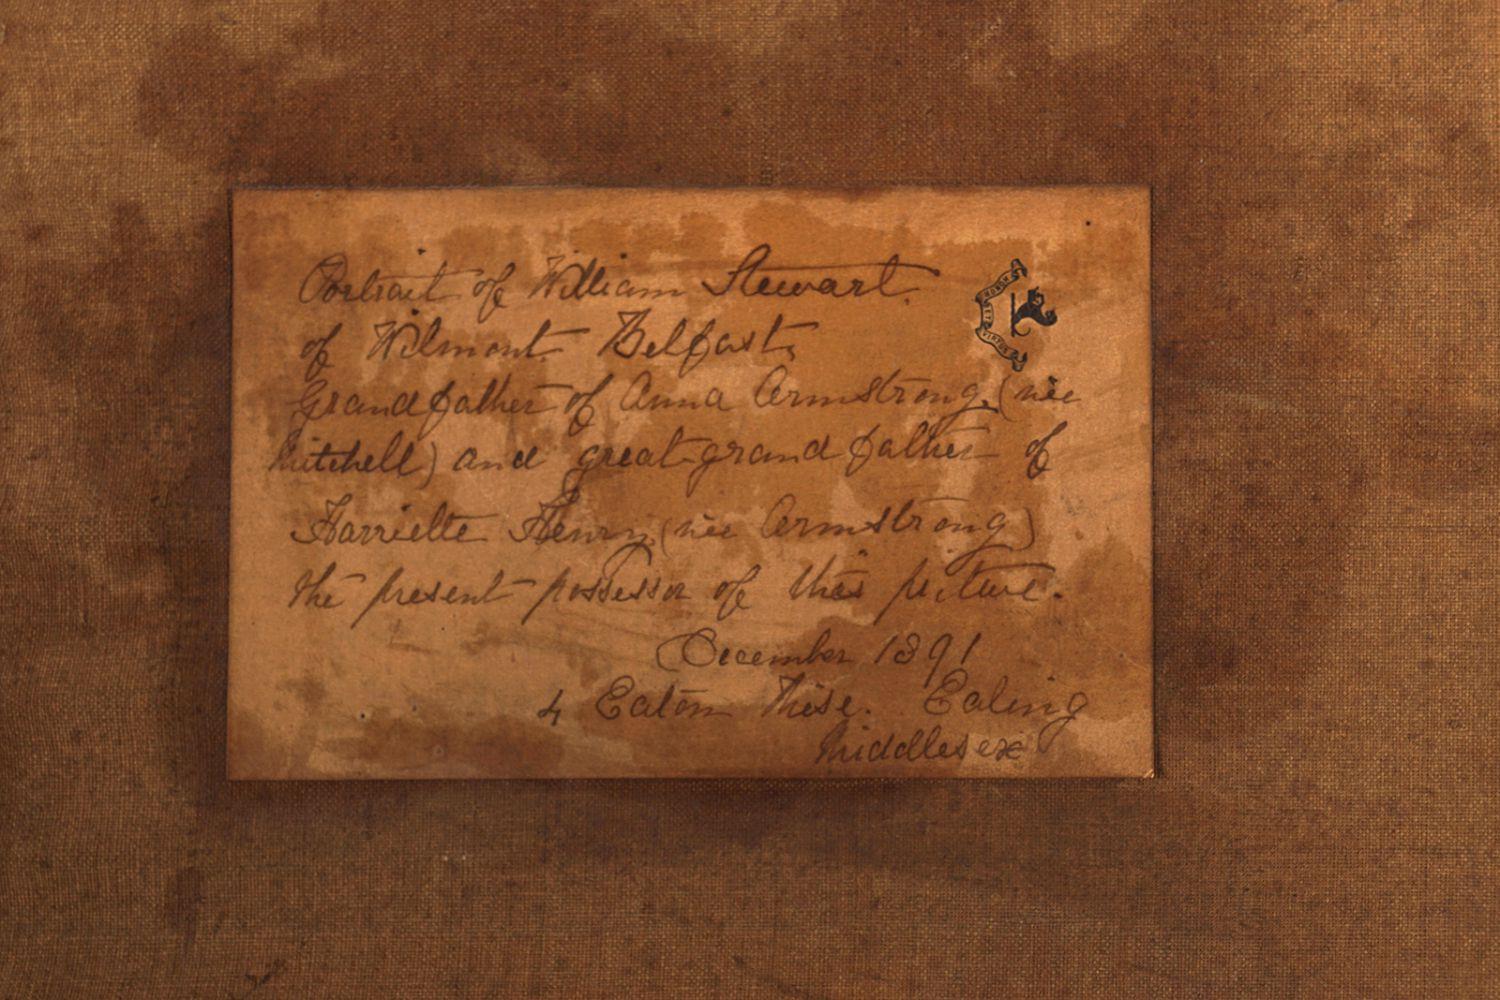 Portrait of William Stewart.
of Wilmont Belfast,
Grandfather of Anna Armstrong, (née
Mitchell) and great-grandfather of
Harriette Henry (née Armstrong)
the present possessor of this picture.
December 1891
4 Eaton Rise. Ealing
Middlesex